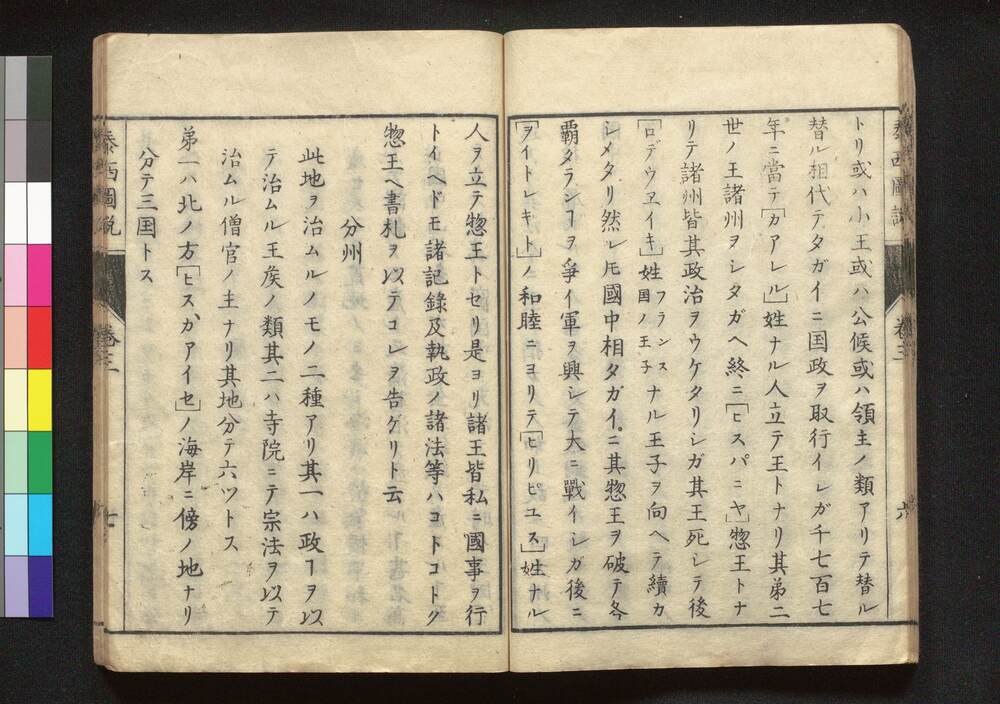 泰西圖説
卷三
六
トリ或ハ小王或ハ公候或ハ領主ノ類アリテ替ル
替ル相代テタガイニ国政ヲ取行イレガ千七百七
年ニ當テ[カアレル]姓ナル人立テ王トナリ其弟二
世ノ王諸州ヲシタガヘ終ニ[ヒスパニヤ]惣王トナ
リテ諸州皆其政治ヲウケタリシガ其王死レテ後
[ロデウヱイキ]姓フランス国ノ王子ナル王子ヲ向ヘテ續カ
シメタリ然レ𪜈國中相タガイニ其惣王ヲ破テ各
覇タランヿヲ爭イ軍ヲ興シテ大ニ戰イシガ後ニ
[ヲイトレキト]ノ和睦ニヨリテ[ヒリピユス]姓ナル
人ヲ立テ惣王トセリ是ヨリ諸王皆私ニ國事ヲ行
トイヘドモ諸記録及執政ノ諸法等ハコトコトク
惣王ヘ書札ヲ以テコレヲ告グリト云
分州
此地ヲ治ムルノモノ二種アリ其一ハ政ヿヲ以
テ治ムル王矦ノ類其二ハ寺院ニテ宗法ヲ以テ
治ムル僧官ノ主ナリ其地分テ六ツトス
弟一ハ北ノ方[ヒスカアイセ]ノ海岸ニ傍ノ地ナリ
分テ三国トス
泰西圖説
卷三
七